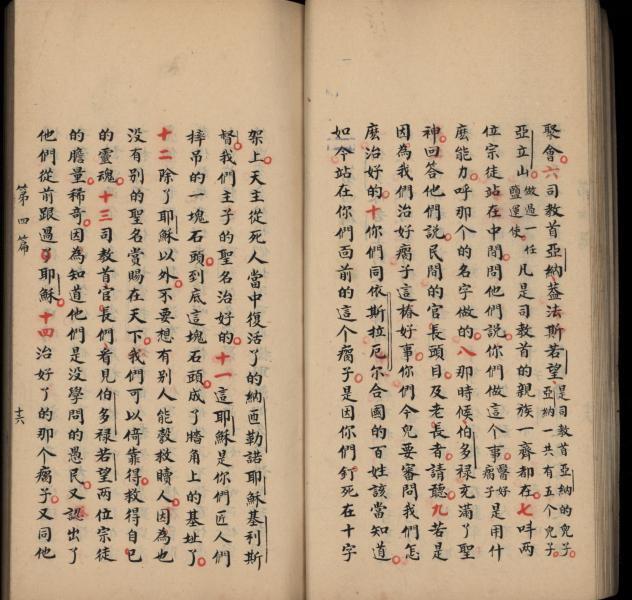 聚會六司教首亞納葢法斯若望是司教首亞納的兒子亞納一共有五个兒子
亞立山做過一任鹽運使凡是司教首的親族一齊都在七呌兩
位宗徒站在中間問他們說你們做這个事醫好瘸子是用什
麽能力呼那个的名字做的八那時候伯多禄充滿了聖
神回答他們說民間的官長頭目及老長者請聽九若是
因為我們治好瘸子這樁好事你們今兒要審問我們怎
麽治好的十你們同依斯拉厄尔合國的百姓該當知道
如今站在你們面前的這个瘸子是因你們釘死在十字
架上天主從死人當中復活了的納匝勒諾耶穌基利斯
督我們主子的聖名治好的十一這耶穌是你們匠人們
摔吊的一塊石頭到底這塊石頭成了牆角上的基址了
十二除了耶穌以外不要想有别人能彀救贖人因為也
没有别的聖名賞賜在天下我們可以倚靠得救得自己
的靈魂十三司教首官長們看見伯多禄若望兩位宗徒
的膽量稀竒因為知道他們是没學問的愚民又認出了
他們從前跟過了耶穌十四治好了的那个瘸子又同他
第四篇
十六